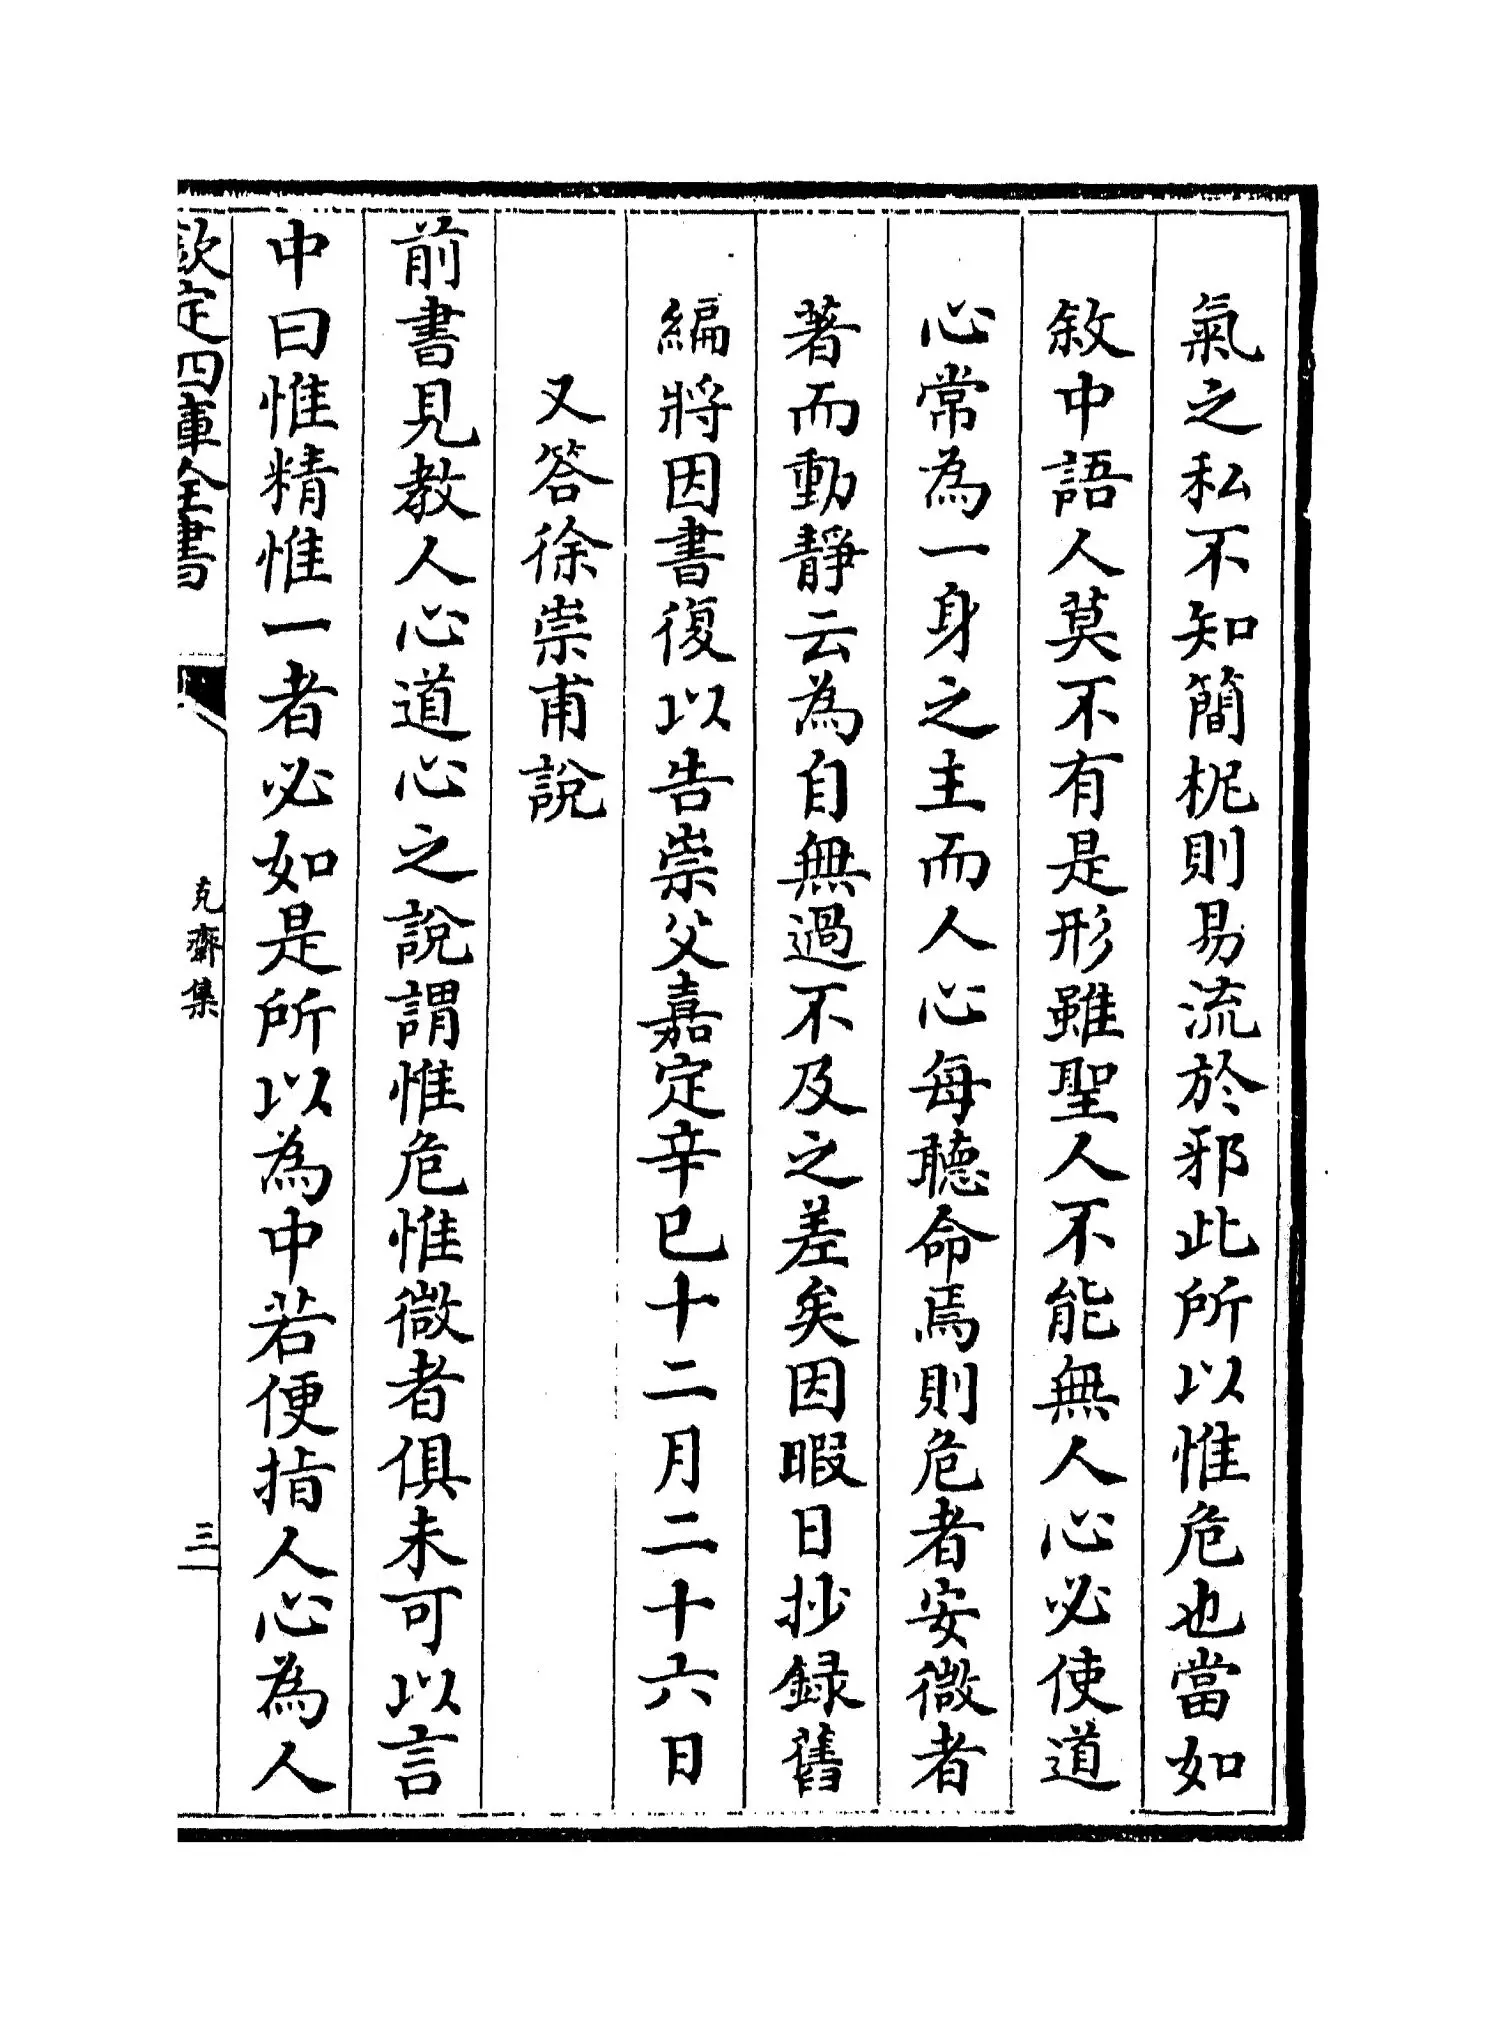 氣之私不知簡柅則易流於邪此所以惟危也當如
敘中語人莫不有是形雖聖人不能無人心必使道
心常為一身之主而人心每聽命焉則危者安微者
著而動靜云為自無過不及之差矣因暇日抄録舊
編將因書復以告崇父嘉定辛巳十二月二十六日
又答徐崇甫說
前書見教人心道心之說謂惟危惟微者俱未可以言
中曰惟精惟一者必如是所以為中若便指人心為人
欽定四庫全書
克齋集
三